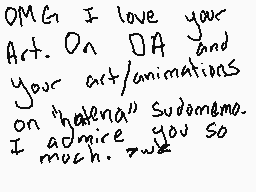 OMG I love your
Art. On DA and
your art/animations
on "hatena" sudomemo.
I admire you so
much. >w<